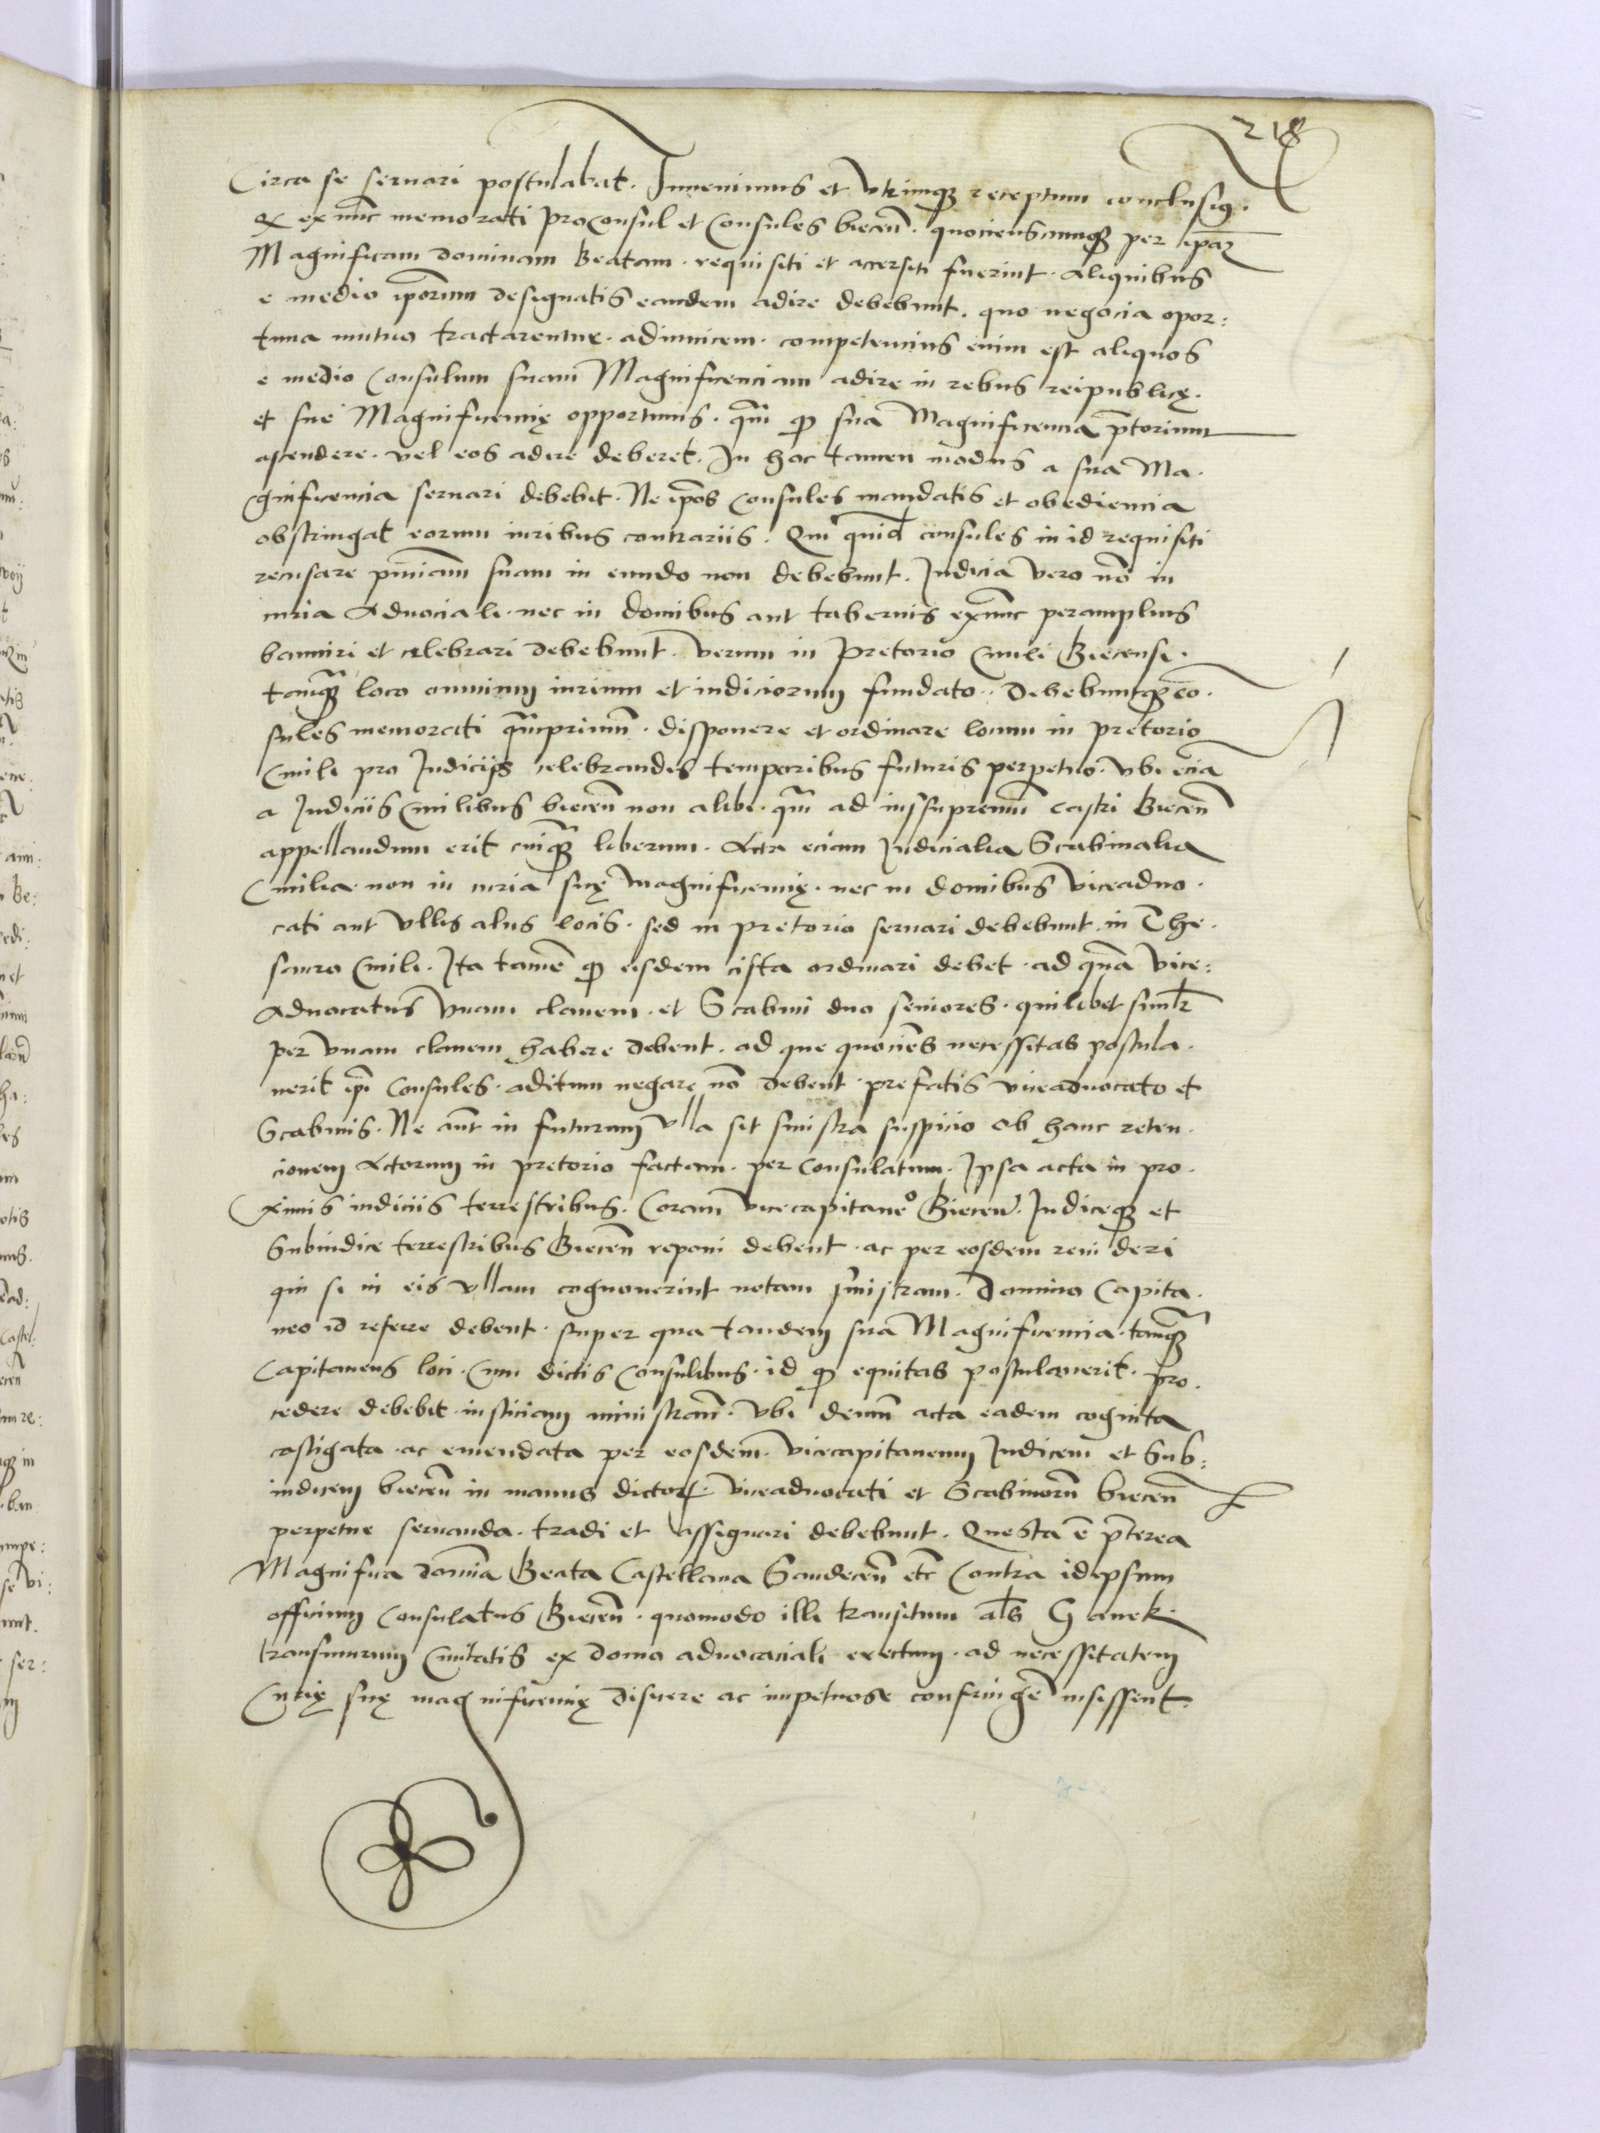 218
Circa se seruari postulabat. Inuenimus et vtrimqз receptum conclusiꝯ.
Q ex nūc memorati proconsul et Consules biecen̄. quociensumqз per ipaꝫ
Magnificam dominam Beatam. requisiti et accersiti fuerint. Aliquibus
e medio ipōrum designatis eandem adire debebunt. quo negocia opor:
tuna mutuo tractarentur. adinuicem. competencius enim est aliquos
e medio Consulum suam Magnificenciam adire in rebus reipublicę.
et sue Magnificencię opportunis. q̄m ꝙ sua Magnificencia p̄torium
ascendere. vel eos adire deberet. In hoc tamen modus a sua Ma.
gnificencia seruari debebit. Ne ip̄os Consules mandatis et obediencia
obstringat eorum iuribus contrariis. Qui quid consules in id requisiti
recusare pn̄ciam suam in eundo non debebunt. Iudicia vero nō in
curia Aduociali. nec in domibus aut tabernis exnūc peramplius
banniri et celebrari debebunt. verum in Pretorio Ciuili Biecensi.
tamqз loco omnium iurium et iudiciorum fundato. debebuntqз cō.
sules memorati q̄mprimum. disponere et ordinare locum in pretorio
Ciuili pro Iudicijs celebrandis temporibus futuris perpetuo. vbi eciā
a Iudiciis Ciuilibus biecen̄ non alibi. q̄m ad iussupremū castri Biecen̄
appellandum erit cuiqз liberum. Acta eciam Iudicialia Scabinalia
Ciuilia non in curia suę magnificencię. nec in domibus viceaduo.
cati aut vllis aliis locis. sed in pretorio seruari debebunt. in The.
sauro Ciuili. Ita tamē ꝙ eisdem cista ordinari debet. ad quā vice:
Aduocatus vnam clauem. et Scabini duo seniores. quilibet simlr̄
per vnam clauem habere debent. ad que quociēs necessitas postula.
uerit ip̄i Consules. aditum negare nō debent. prefatis viceaduocato et
Scabinis. Ne aūt in futurum vlla sit sinistra suspicio ob hanc reten.
cionem Actorum in pretorio factam. per Consulatum. Ipsa acta in pro.
ximis iudiciis terrestribus. Coram vicecapitaneo Biecen̄. Iudiceqз et
Subiudice terrestribus Biecen̄ reponi debent. ac per eosdem reuideri
qui si in eis vllam cognouerint notam sinistram. Domino Capita.
neo id referre debent. super qua tandem sua Magnificencia. tamqз
Capitaneus loci. Cum dictis Consulibus. id ꝙ equitas postulauerit. pro.
cedere debebit. iusticiam ministran̄. Vbi demū acta eadem cognita
castigata. ac emendata per eosdem. Vicecapitaneum Iudicem et Sub:
iudicem biecen̄ in manus dictoꝝ. viceaduocati et Scabinorū biecen̄
perpetue seruanda. tradi et assignari debebunt. Questa ē p̄terea
Magnifica domīa Beata Castellana Sandecen̄ etc̄ Contra idipsum
officium Consulatus Biecen̄. quomodo illi transitum als̄ Ganek
transmurum Ciuitatis ex domo aduocaciali erectum. ad necessitatem
Curię suę magnificencię disuere ac impetuose confringē iusissent.